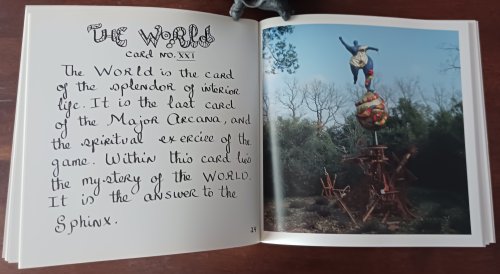 THE WORLD
CARD NO. XXI
The World is the card
of the splendor of interior
life. It is the last card
of the Major Arcana, and
the spiritual exercice of the
game. Within this card lies
the mystery of the WORLD.
It is the answer to the
Sphinx.
24